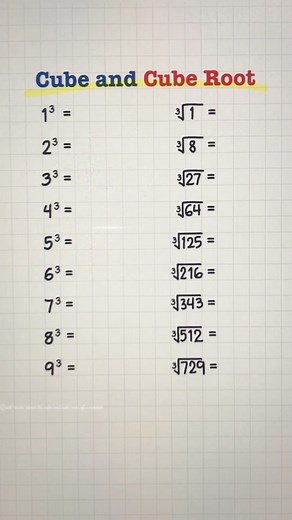 Cube and Cube Root
1³ = ∛1 =
2³ = ∛8 =
3³ = ∛27 =
4³ = ∛64 =
5³ = ∛125 =
6³ = ∛216 =
7³ = ∛343 =
8³ = ∛512 =
9³ = ∛729 =